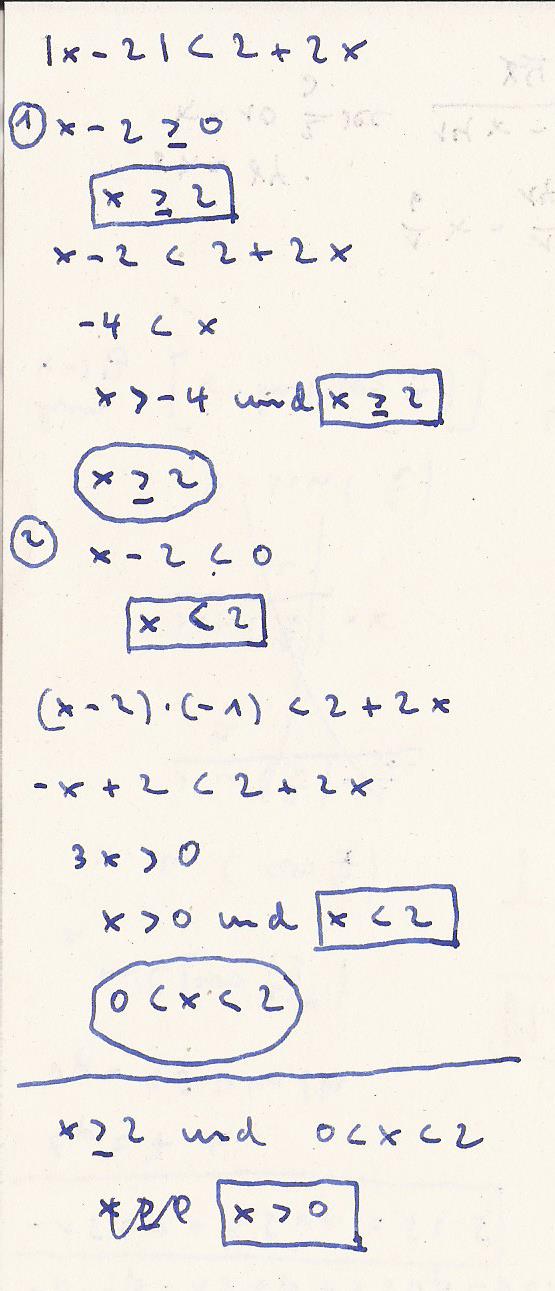 |x - 2| < 2 + 2x
① x - 2 ≥ 0
x ≥ 2
x - 2 < 2 + 2x
-4 < x
x > -4 und x ≥ 2
x ≥ 2
② x - 2 < 0
x < 2
(x - 2) · (-1) < 2 + 2x
-x + 2 < 2 + 2x
3x > 0
x > 0 und x < 2
0 < x < 2
x ≥ 2 und 0 < x < 2
x > 0